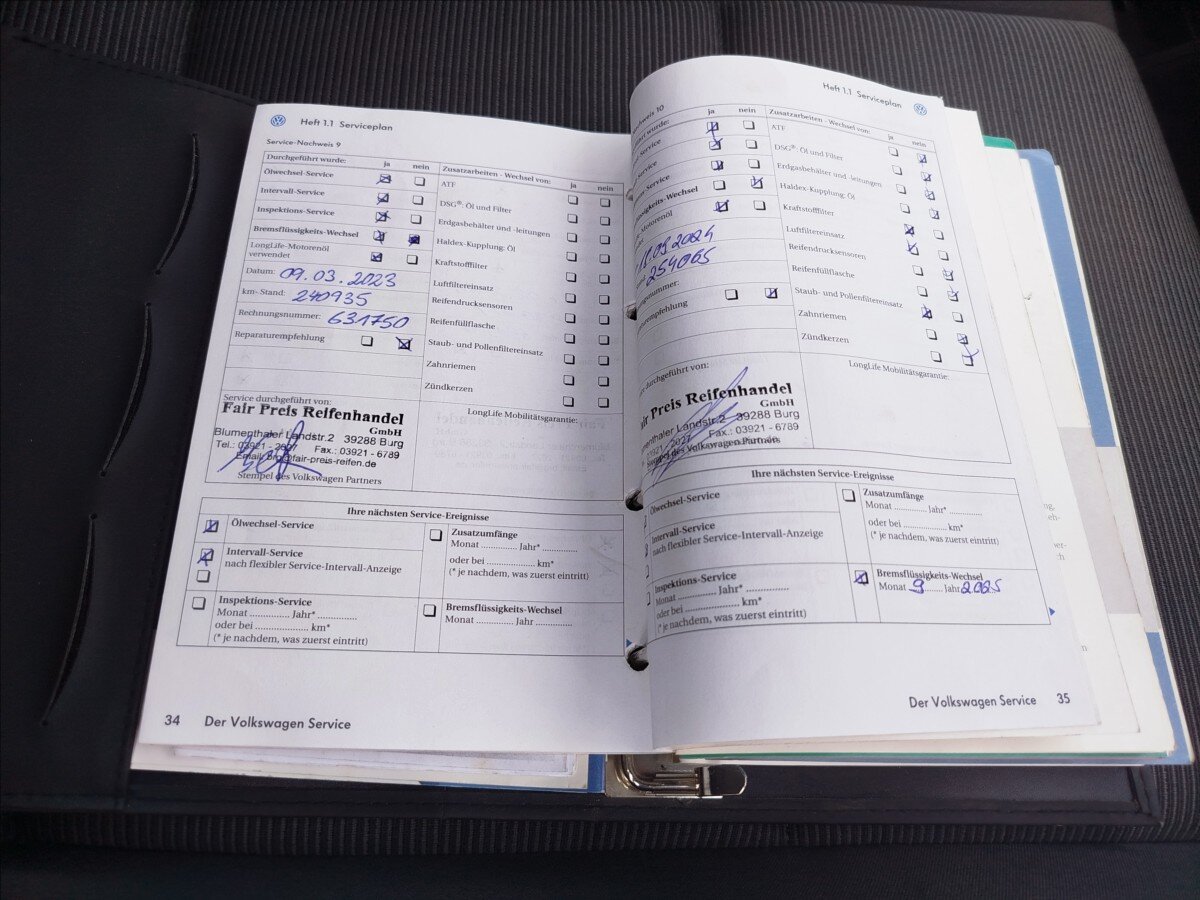 Heft 1.1 Serviceplan
Service-Nachweis 9
Durchgeführt wurde: ja nein
Ölwechsel-Service
Intervall-Service
Inspektions-Service
Bremsflüssigkeits-Wechsel
LongLife-Motorenöl
verwendet
Datum: 09.03.2023
km-Stand: 240935
Rechnungsnummer: 631750
Reparaturempfehlung
Zusatzarbeiten - Wechsel von: ja nein
ATF
DSG®: Öl und Filter
Erdgasbehälter und -leitungen
Haldex-Kupplung: Öl
Kraftstofffilter
Luftfiltereinsatz
Reifendrucksensoren
Reifenfüllflasche
Staub- und Pollenfiltereinsatz
Zahnriemen
Zündkerzen
Service durchgeführt von:
Fair Preis Reifenhandel
GmbH
Blumenthaler Landstr.2 39288 Burg
Fax.: 03921 - 6789
Stempel des Volkswagen Partners
LongLife Mobilitätsgarantie:
Ihre nächsten Service-Ereignisse
Ölwechsel-Service
Intervall-Service
nach flexibler Service-Intervall-Anzeige
Inspektions-Service
Monat .............. Jahr* ..............
oder bei ........................ km*
(* je nachdem, was zuerst eintritt)
Zusatzumfänge
Monat ............. Jahr* .............
oder bei ........................ km*
(* je nachdem, was zuerst eintritt)
Bremsflüssigkeits-Wechsel
Monat ............. Jahr .............
34 Der Volkswagen Service
Heft 1.1 Serviceplan
ja nein
LongLife Mobilitätsgarantie:
Zusatzarbeiten - Wechsel von: ja nein
ATF
DSG®: Öl und Filter
Erdgasbehälter und -leitungen
Haldex-Kupplung: Öl
Kraftstofffilter
Luftfiltereinsatz
Reifendrucksensoren
Reifenfüllflasche
Staub- und Pollenfiltereinsatz
Zahnriemen
Zündkerzen
254065
Preis Reifenhandel
GmbH
Landstr.2 39288 Burg
Fax.: 03921 - 6789
des Volkswagen Partners
Ihre nächsten Service-Ereignisse
Ölwechsel-Service
Intervall-Service
nach flexibler Service-Intervall-Anzeige
Inspektions-Service
Monat .............. Jahr* ..............
oder bei ........................ km*
(* je nachdem, was zuerst eintritt)
Zusatzumfänge
Monat ............. Jahr* .............
oder bei ........................ km*
(* je nachdem, was zuerst eintritt)
Bremsflüssigkeits-Wechsel
Monat 9 Jahr 2025
Der Volkswagen Service 35